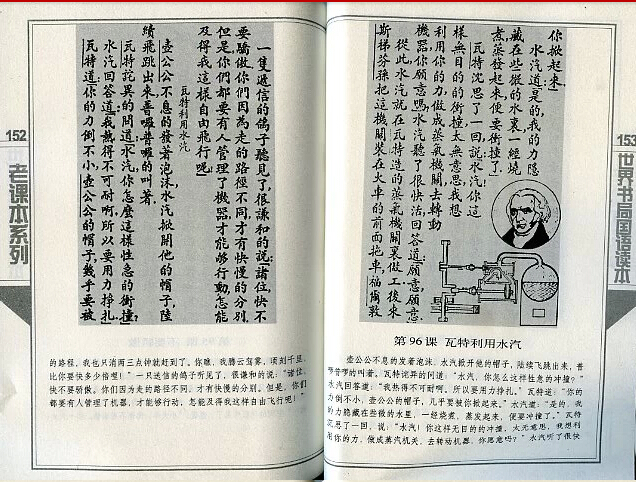 152
老课本系列
一隻遞信的鴿子聽見了很謙和的說諸位快不
要驕傲你們因為走的路徑不同才有快慢的分別
但是你們都要有人管理了機器才能够行動怎能
及得我這樣自由飛行呢
瓦特利用水汽
壺公公不息的發著泡沫水汽掀開他的帽子陸
續飛跳出來普囉普囉的叫著
瓦特詫異的問道水汽你怎麼這樣性急的衝撞
水汽回答道我熱得不可耐啊所以要用力掙扎
瓦特道你的力倒不小壺公公的帽子幾乎要被
的路程，我也只消两三点钟就赶到了。你瞧，我腾云驾雾，顷刻千里，
比你要快多少倍哩！”一只送信的鸽子听见了，很谦和的说：“诸位，
快不要骄傲。你们因为走的路径不同，才有快慢的分别。但是，你们
都要有人管理了机器，才能够行动，怎能及得我这样自由飞行呢！”
153
世界书局国语读本
你掀起來
水汽道是的我的力隱
藏在些微的水裏一經燒
煮蒸發起來便要衝撞了
瓦特沈思了一回說水汽你這
樣無目的的衝撞太無意思我想
利用你的力做成蒸氣機關去轉動
機器你願意嗎水汽聽了很快活回答道願意願意
從此水汽就在瓦特造的蒸氣機關裏做工後來
斯梯芬孫把這機關裝在火車的前面拖車福爾敦
第96课 瓦特利用水汽
壶公公不息的发着泡沫。水汽掀开他的帽子，陆续飞跳出来，普
啰普啰的叫着。瓦特诧异的问道：“水汽，你怎么这样性急的冲撞？”
水汽回答道：“我热得不可耐啊，所以要用力挣扎。”瓦特道：“你的
力倒不小，壶公公的帽子，几乎要被你掀起来。”水汽道：“是的，我
的力隐藏在些微的水里，一经烧煮，蒸发起来，便要冲撞了。”瓦特
沉思了一回，说：“水汽！你这样无目的的冲撞，太无意思，我想利
用你的力，做成蒸汽机关，去转动机器，你愿意吗？”水汽听了很快